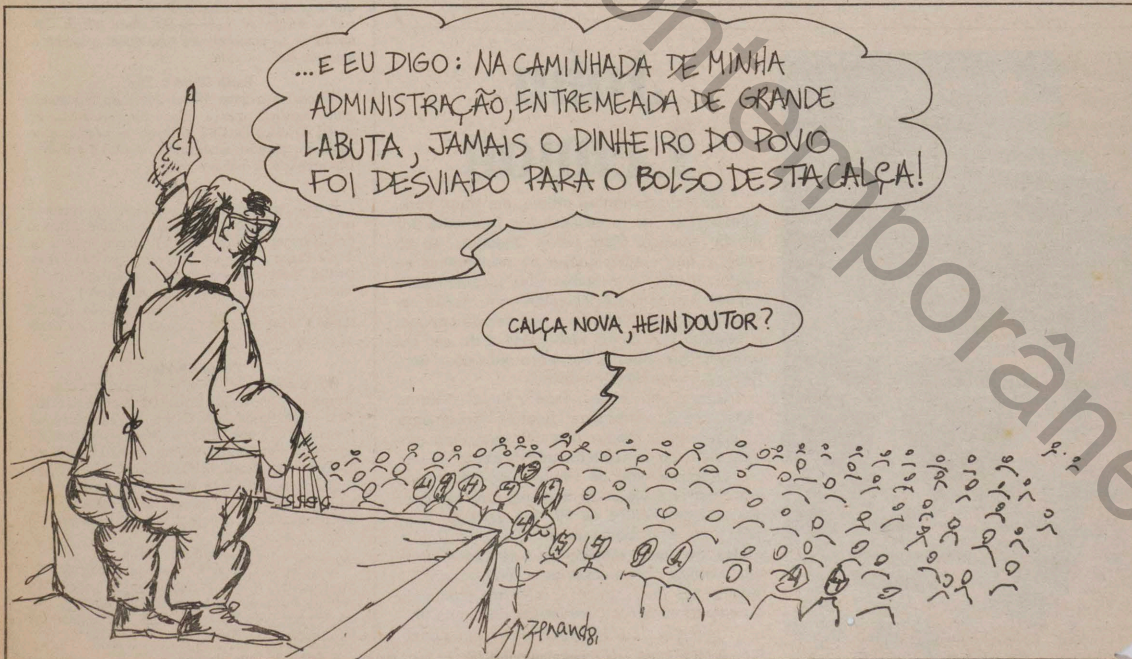 ...E EU DIGO: NA CAMINHADA DE MINHA
ADMINISTRAÇÃO, ENTREMEADA DE GRANDE
LABUTA, JAMAIS O DINHEIRO DO POVO
FOI DESVIADO PARA O BOLSO DESTA CALÇA!
CALÇA NOVA, HEIN DOUTOR?
ontemporâne